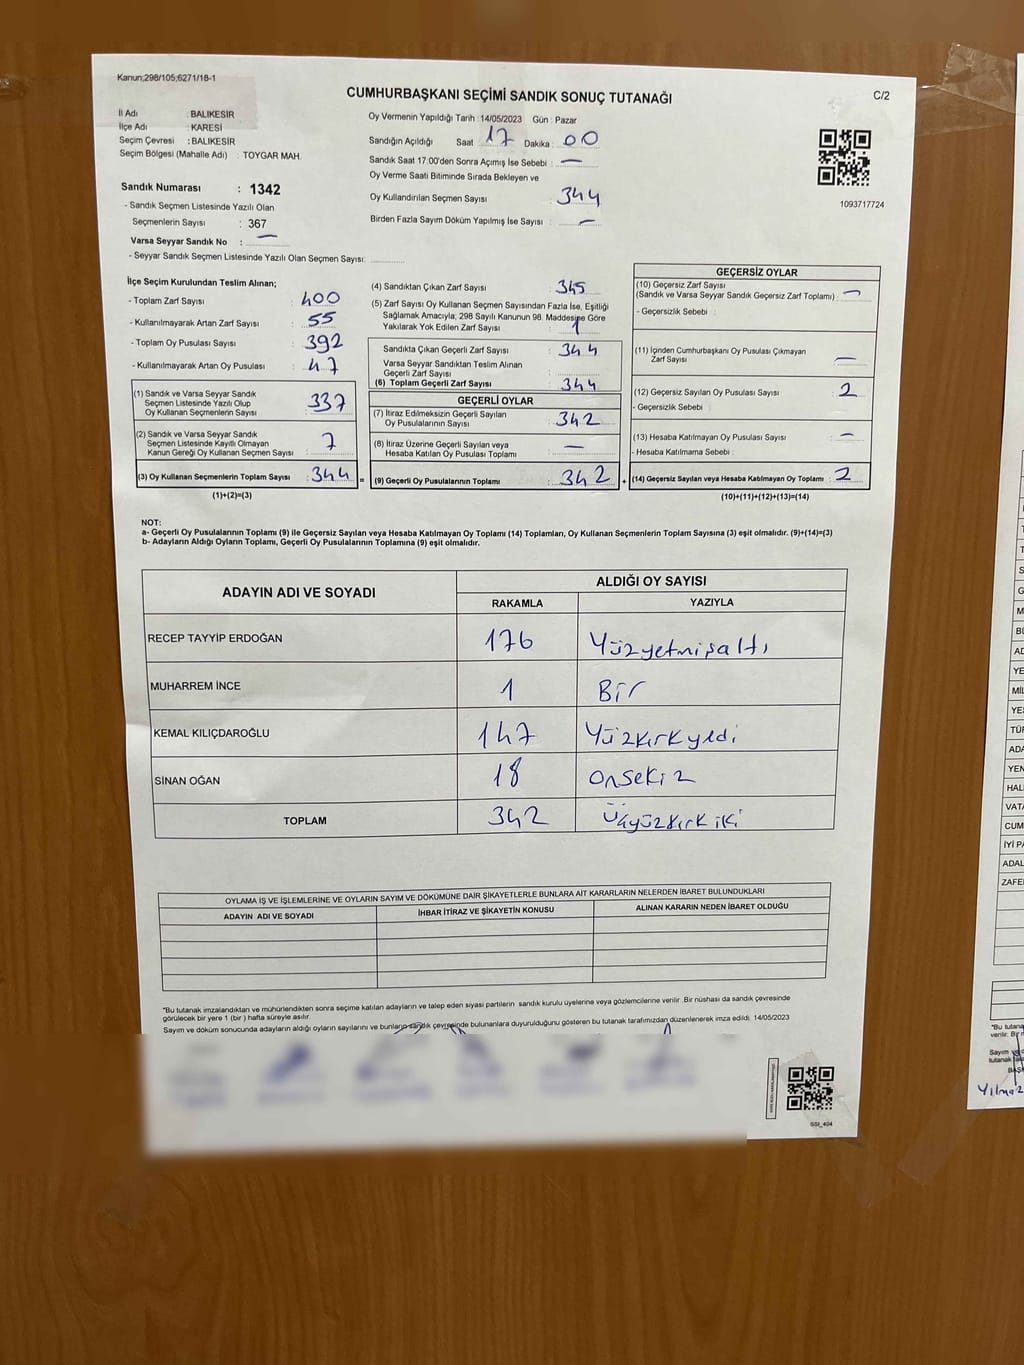 Kanun;298/105;6271/18-1
CUMHURBAŞKANI SEÇİMİ SANDIK SONUÇ TUTANAĞI
C/2
İl Adı : BALIKESİR
İlçe Adı : KARESİ
Seçim Çevresi : BALIKESİR
Seçim Bölgesi (Mahalle Adı) : TOYGAR MAH.
Sandık Numarası : 1342
- Sandık Seçmen Listesinde Yazılı Olan
Seçmenlerin Sayısı : 367
Varsa Seyyar Sandık No : —
- Seyyar Sandık Seçmen Listesinde Yazılı Olan Seçmen Sayısı:
Oy Vermenin Yapıldığı Tarih : 14/05/2023 Gün : Pazar
Sandığın Açıldığı Saat 17 Dakika : 00
Sandık Saat 17:00'den Sonra Açımış İse Sebebi : —
Oy Verme Saati Bitiminde Sırada Bekleyen ve
Oy Kullandırılan Seçmen Sayısı : 344
Birden Fazla Sayım Döküm Yapılmış İse Sayısı : —
1093717724
İlçe Seçim Kurulundan Teslim Alınan;
- Toplam Zarf Sayısı : 400
- Kullanılmayarak Artan Zarf Sayısı : 55
- Toplam Oy Pusulası Sayısı : 392
- Kullanılmayarak Artan Oy Pusulası : 47
(1) Sandık ve Varsa Seyyar Sandık
Seçmen Listesinde Yazılı Olup
Oy Kullanan Seçmenlerin Sayısı : 337
(2) Sandık ve Varsa Seyyar Sandık
Seçmen Listesinde Kayıtlı Olmayan
Kanun Gereği Oy Kullanan Seçmen Sayısı : 7
(3) Oy Kullanan Seçmenlerin Toplam Sayısı : 344 =
(1)+(2)=(3)
(4) Sandıktan Çıkan Zarf Sayısı : 345
(5) Zarf Sayısı Oy Kullanan Seçmen Sayısından Fazla İse, Eşitliği
Sağlamak Amacıyla; 298 Sayılı Kanunun 98. Maddesine Göre
Yakılarak Yok Edilen Zarf Sayısı : 1
Sandıkta Çıkan Geçerli Zarf Sayısı : 344
Varsa Seyyar Sandıktan Teslim Alınan
Geçerli Zarf Sayısı :
(6) Toplam Geçerli Zarf Sayısı : 344
GEÇERLİ OYLAR
(7) İtiraz Edilmeksizin Geçerli Sayılan
Oy Pusulalarının Sayısı : 342
(8) İtiraz Üzerine Geçerli Sayılan veya
Hesaba Katılan Oy Pusulası Toplamı : —
(9) Geçerli Oy Pusulalarının Toplamı : 342 +
GEÇERSİZ OYLAR
(10) Geçersiz Zarf Sayısı
(Sandık ve Varsa Seyyar Sandık Geçersiz Zarf Toplamı) : —
- Geçersizlik Sebebi :
(11) İçinden Cumhurbaşkanı Oy Pusulası Çıkmayan
Zarf Sayısı : —
(12) Geçersiz Sayılan Oy Pusulası Sayısı : 2
- Geçersizlik Sebebi :
(13) Hesaba Katılmayan Oy Pusulası Sayısı : —
- Hesaba Katılmama Sebebi :
(14) Geçersiz Sayılan veya Hesaba Katılmayan Oy Toplamı : 2
(10)+(11)+(12)+(13)=(14)
NOT:
a- Geçerli Oy Pusulalarının Toplamı (9) ile Geçersiz Sayılan veya Hesaba Katılmayan Oy Toplamı (14) Toplamları, Oy Kullanan Seçmenlerin Toplam Sayısına (3) eşit olmalıdır. (9)+(14)=(3)
b- Adayların Aldığı Oyların Toplamı, Geçerli Oy Pusulalarının Toplamına (9) eşit olmalıdır.
ADAYIN ADI VE SOYADI ALDIĞI OY SAYISI
RAKAMLA YAZIYLA
RECEP TAYYİP ERDOĞAN 176 Yüzyetmişaltı
MUHARREM İNCE 1 Bir
KEMAL KILIÇDAROĞLU 147 Yüzkırkyedi
SİNAN OĞAN 18 Onsekiz
TOPLAM 342 Üçyüzkırkiki
OYLAMA İŞ VE İŞLEMLERİNE VE OYLARIN SAYIM VE DÖKÜMÜNE DAİR ŞİKAYETLERLE BUNLARA AİT KARARLARIN NELERDEN İBARET BULUNDUKLARI
ADAYIN ADI VE SOYADI İHBAR İTİRAZ VE ŞİKAYETİN KONUSU ALINAN KARARIN NEDEN İBARET OLDUĞU
*Bu tutanak imzalandıktan ve mühürlendikten sonra seçime katılan adayların ve talep eden siyasi partilerin sandık kurulu üyelerine veya gözlemcilerine verilir. Bir nüshası da sandık çevresinde
görülecek bir yere 1 (bir ) hafta süreyle asılır.
Sayım ve döküm sonucunda adayların aldığı oyların sayılarını ve bunların sandık çevresinde bulunanlara duyurulduğunu gösteren bu tutanak tarafımızdan düzenlenerek imza edildi. 14/05/2023
SSI_404
YE
MİL
YES
TÜR
ADA
YEN
HAL
VATA
CUM
İYİ PA
ADAL
ZAFE
*Bu tutana
verilir. Bir n
Sayım ve
tutanak
Yılmaz